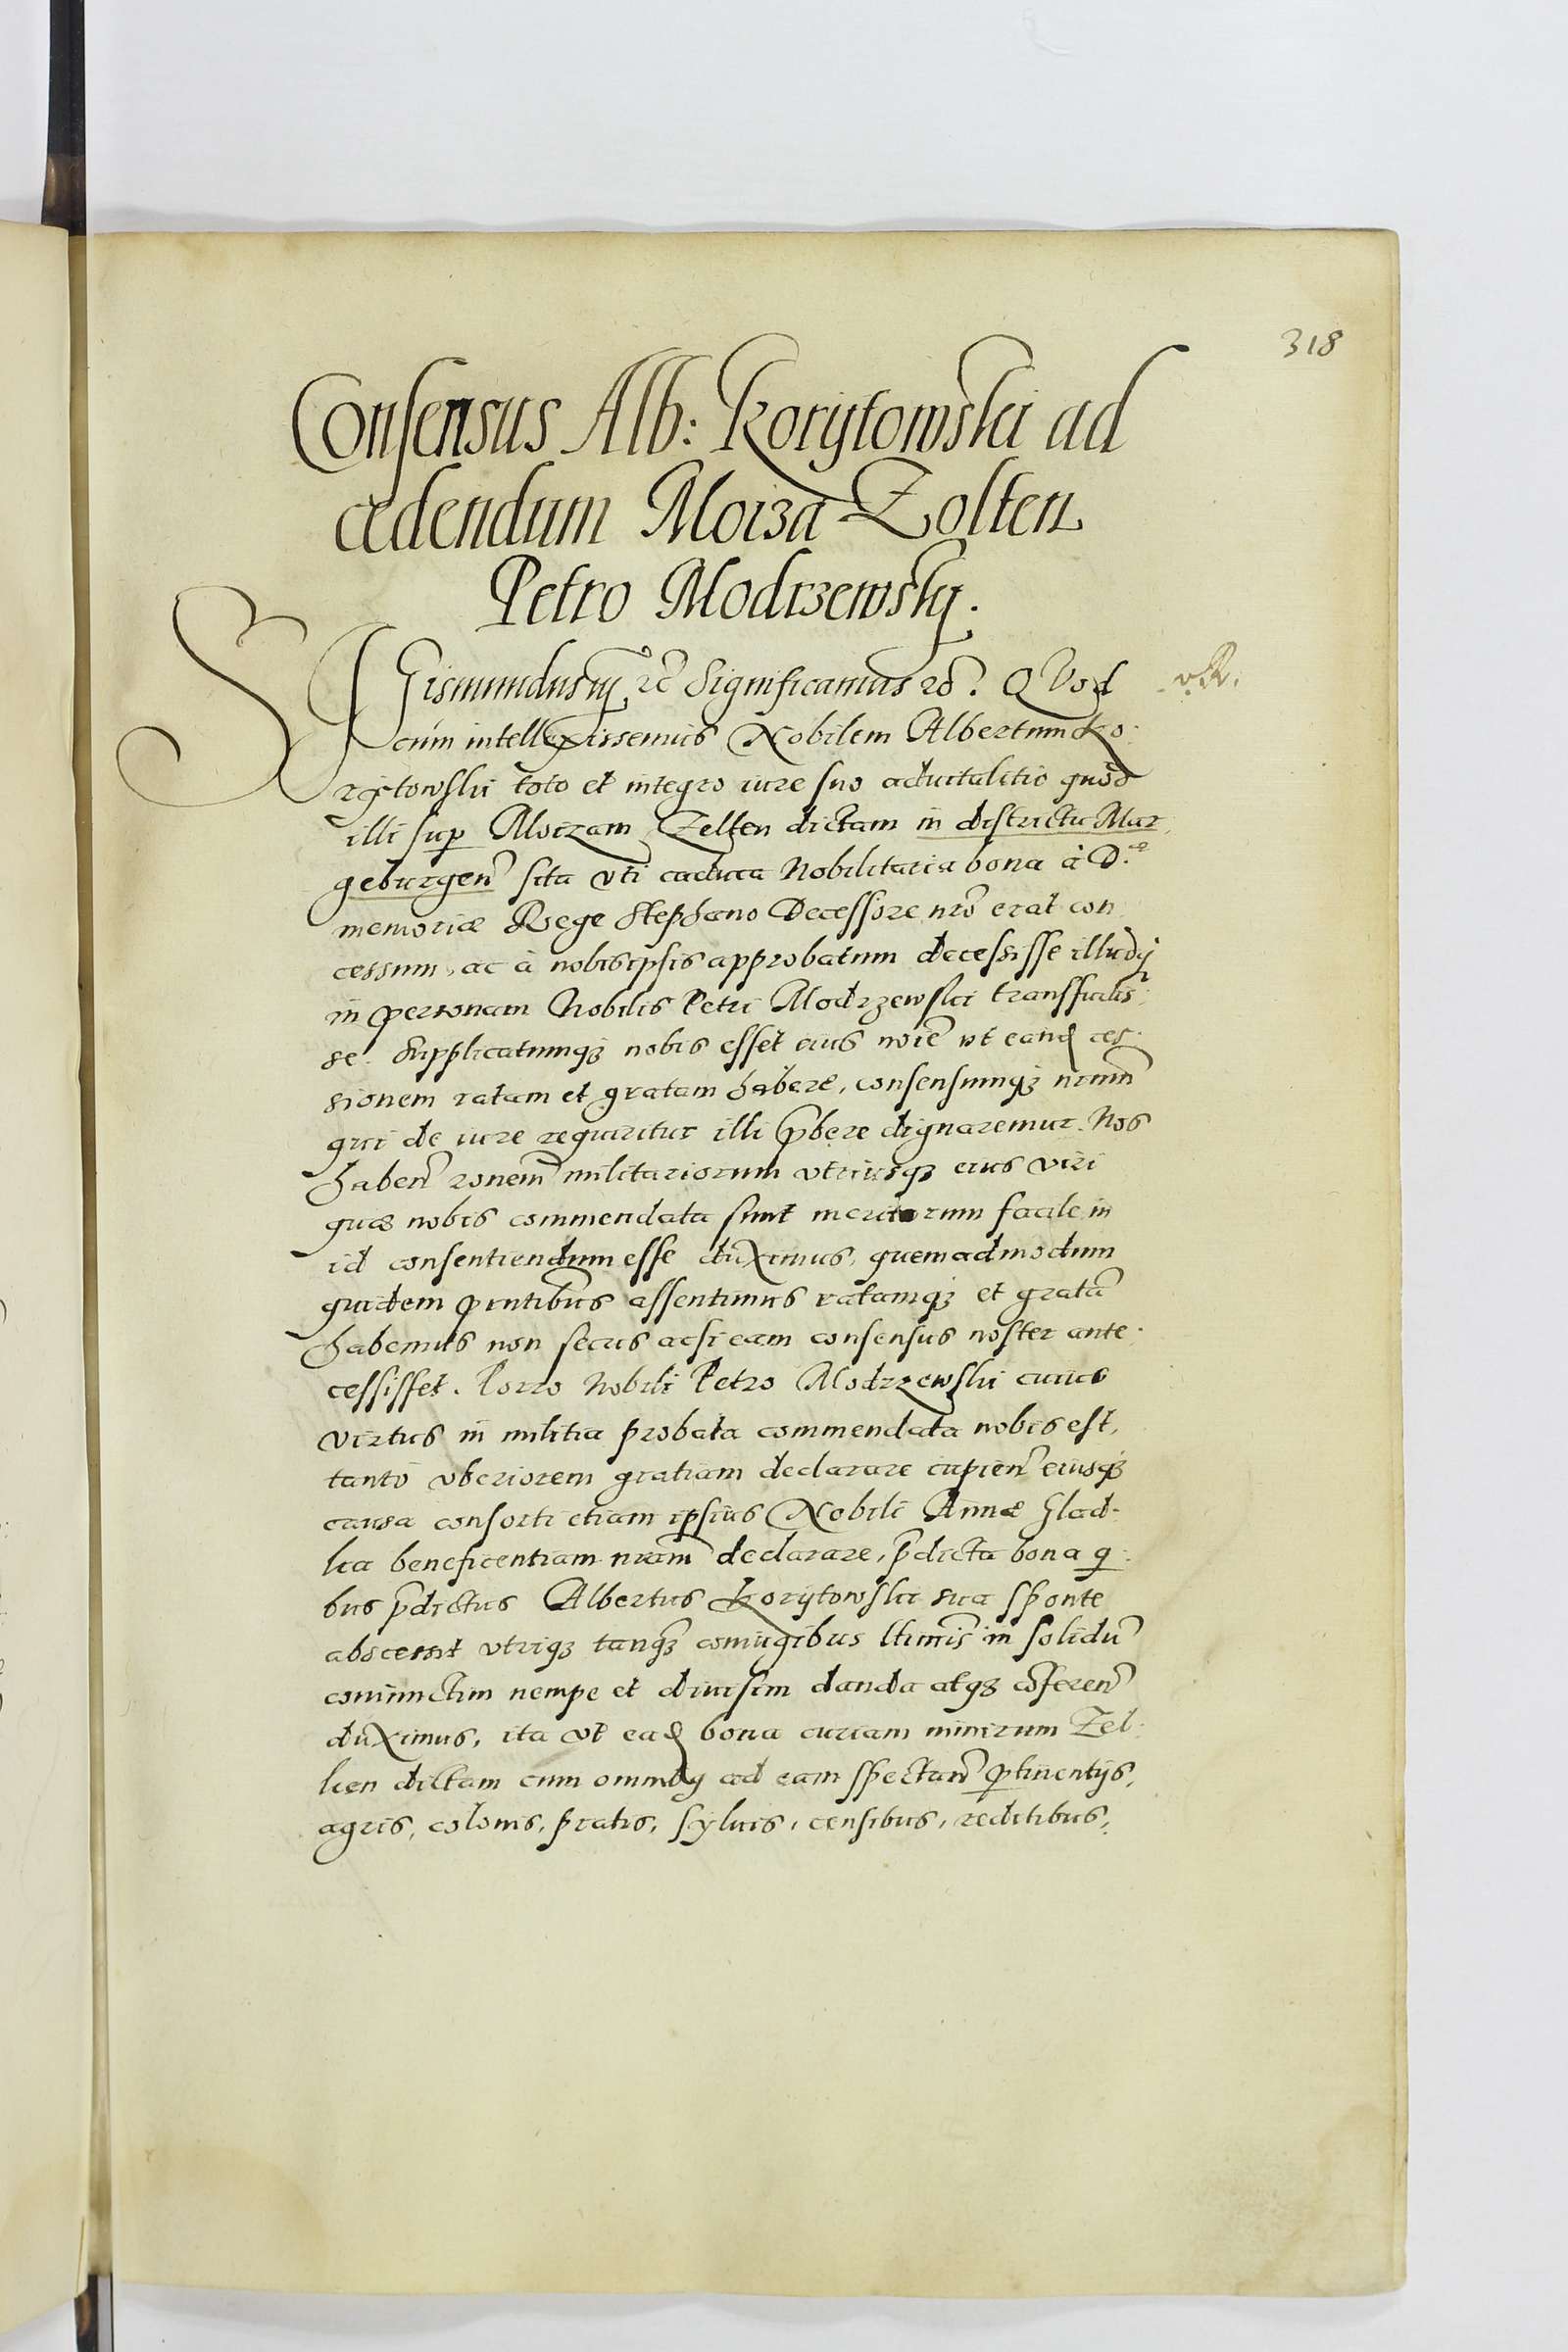 318
Consensus Alb: Korÿtowski ad
cedendum Moiza Zolten
Petro Modrzewskÿ.
SIGismundus iij, rc̃ Significamus rc̃. QVod
v. R.
cum intellexissemus Nobilem Albertum Ko-
rÿtowski toto et integro iure suo aduitalitio quod
illi sup Moizam Zelten dictam in districtu Mar
geburgeñ sita vti caduca Nobilitaria bona à D.æ
memoriæ Rege Stephano Decessore nr̃o erat con
cessum, ac à nobis ipsis approbatum decessisse illudq̃
in personam Nobilis Petri Modrzewski transfudis-
se. Supplicatumqꝫ nobis esset eius noĩe vt eand ces-
sionem ratam et gratam habere, consensumqꝫ nr̃um
qui de iure requiritur illi p̃bere dignaremur. Nos
habeñ rõnem militariorum vtriusqꝫ eius viri
quæ nobis commendata sunt meritorum facile in
id consentiendum esse duximus, quemadmodum
quidem pñtibus assentimus ratamqꝫ et gratã
habemus non secus acsi eam consensus noster ante-
cessisset. Porro Nobili Petro Modrzewski cuius
virtus in militia probata commendata nobis est,
tanto vberiorem gratiam declarare cupieñ eiusqꝫ
causa consorti etiam ipsius Nobili Annæ Glad-
ka beneficentiam nr̃am declarare, p̃dicta bona q-
bus p̃dictus Albertus Korÿtowski sua sponte
abscessit vtriqꝫ tanqꝫ coniugibus ltimis in solidũ
coniunctim nempe et diuisim danda atqꝫ cõfereñ
duximus, ita vt ead bona curiam nimirum Zel-
ken dictam cum omnibꝫ ad eam spectañ ptinentijs,
agris, colonis, pratis, sÿluis, censibus, reditibus,